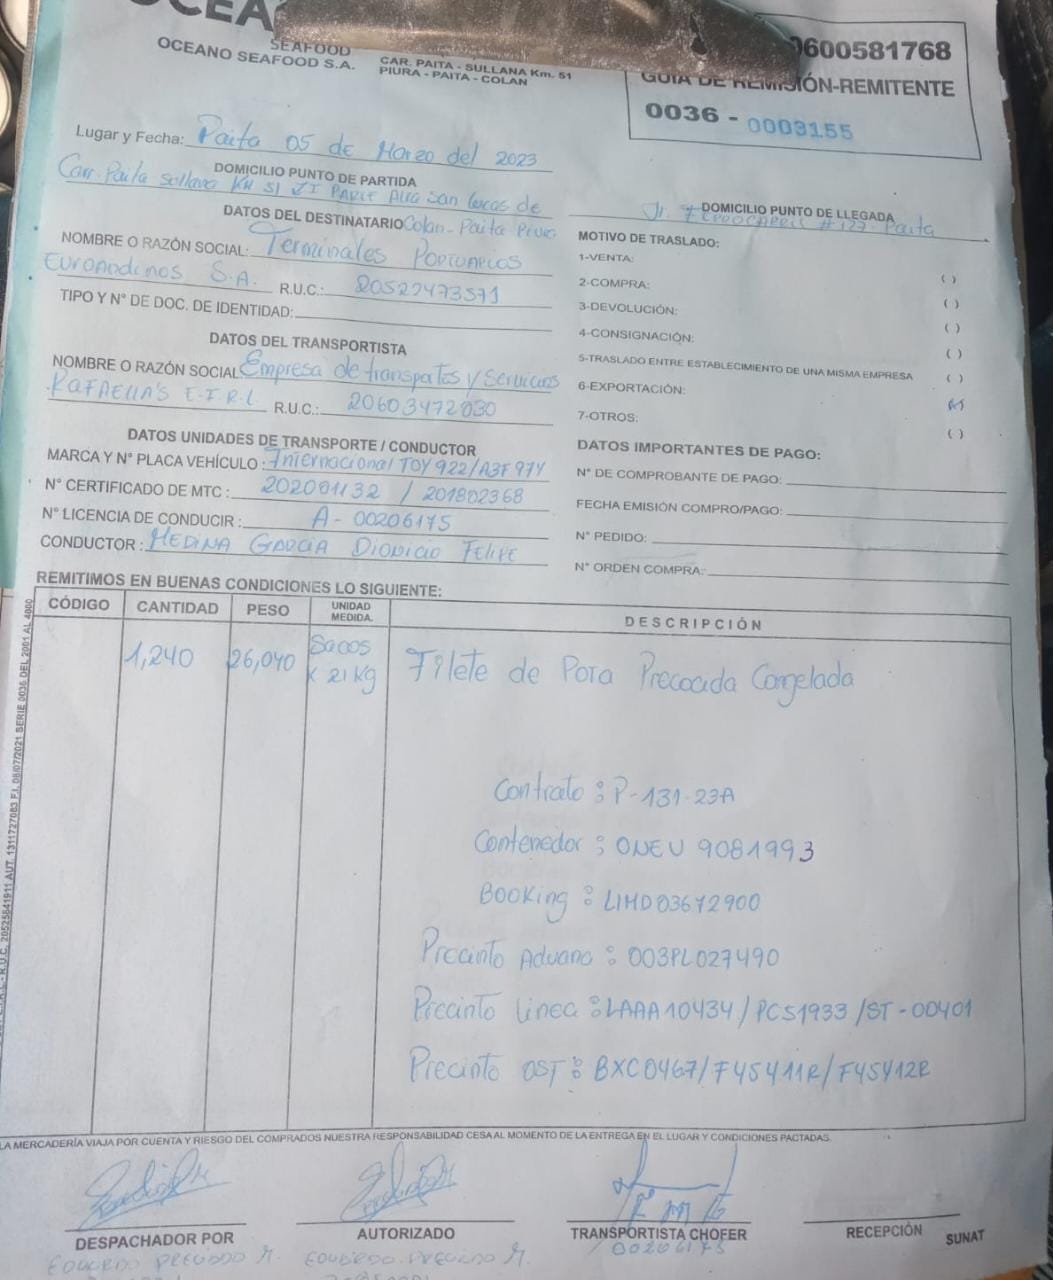 OCEA
SEAFOOD
OCEANO SEAFOOD S.A.
CAR. PAITA - SULLANA Km. 51
PIURA - PAITA - COLAN
0600581768
GUIA DE REMISIÓN-REMITENTE
0036 - 0003155
Lugar y Fecha: Paita 05 de Marzo del 2023
DOMICILIO PUNTO DE PARTIDA
Carr. Paita Sullana KM 51 ZI PARTE Alta San Lucas de
Colan - Paita Piura
DOMICILIO PUNTO DE LLEGADA
Jr. FERROCARRIL # 127 - Paita
DATOS DEL DESTINATARIO
NOMBRE O RAZÓN SOCIAL: Terminales PORTUARIOS
EuroAndinos S.A. R.U.C.: 20522473571
TIPO Y N° DE DOC. DE IDENTIDAD:
DATOS DEL TRANSPORTISTA
NOMBRE O RAZÓN SOCIAL: Empresa de transportes y Servicios
RAFAELLA'S E.I.R.L R.U.C.: 20603472030
DATOS UNIDADES DE TRANSPORTE / CONDUCTOR
MARCA Y N° PLACA VEHÍCULO: Internacional TOY 922/A3F 974
N° CERTIFICADO DE MTC: 202001132 / 201802368
N° LICENCIA DE CONDUCIR: A-00206175
CONDUCTOR: MEDINA GARCIA DIONICIO FELIPE
MOTIVO DE TRASLADO:
1-VENTA: ( )
2-COMPRA: ( )
3-DEVOLUCIÓN: ( )
4-CONSIGNACIÓN: ( )
5-TRASLADO ENTRE ESTABLECIMIENTO DE UNA MISMA EMPRESA ( )
6-EXPORTACIÓN: (x)
7-OTROS: ( )
DATOS IMPORTANTES DE PAGO:
N° DE COMPROBANTE DE PAGO:
FECHA EMISIÓN COMPRO/PAGO:
N° PEDIDO:
N° ORDEN COMPRA:
REMITIMOS EN BUENAS CONDICIONES LO SIGUIENTE:
CÓDIGO CANTIDAD PESO UNIDAD MEDIDA. DESCRIPCIÓN
1,240 26,040 Sacos x 21 Kg Filete de Pota Precocida Congelada
Contrato: P-131-23A
Contenedor: ONEU 9081993
Booking: LIMD03672900
Precinto Aduana: 003PL027490
Precinto Linea: LAAA10434/PCS1933/ST-00401
Precinto OST: BXC0467/F45411R/F45412R
R.U.C. 20525841911 AUT. 1311727083 F.I. 08/07/2021 SERIE 0036 DEL 2001 AL 4000
LA MERCADERÍA VIAJA POR CUENTA Y RIESGO DEL COMPRADOS NUESTRA RESPONSABILIDAD CESA AL MOMENTO DE LA ENTREGA EN EL LUGAR Y CONDICIONES PACTADAS.
DESPACHADOR POR
AUTORIZADO
TRANSPORTISTA CHOFER
RECEPCIÓN
SUNAT
EDUARDO PRECIADO M.
EDUARDO PRECIADO M.
00206175